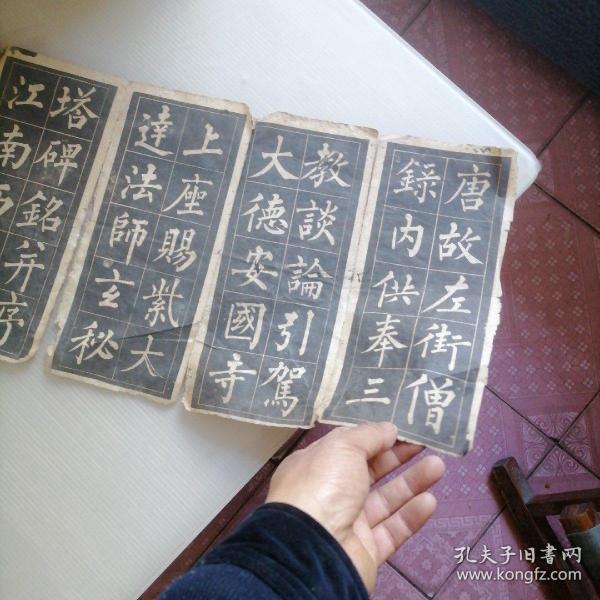 唐故左街僧
錄內供奉三
教談論引駕
大德安國寺
上座賜紫大
達法師玄秘
塔碑銘并序
江南西
孔夫子旧書网
www.kongfz.com